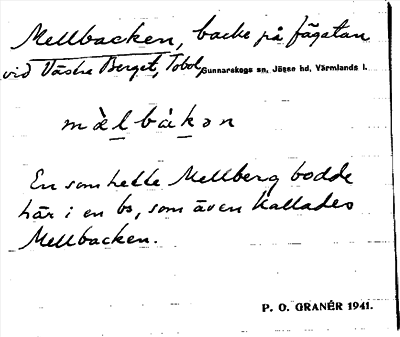 Mellbacken, backe på fägatan
vid Västra Berget, Tobol, Gunnarskogs sn, Jösse hd, Värmlands l.
mὰlbákən
En som hette Mellberg bodde
här i en bs, som även kallades
Mellbacken.
P. O. GRANÉR 1941.